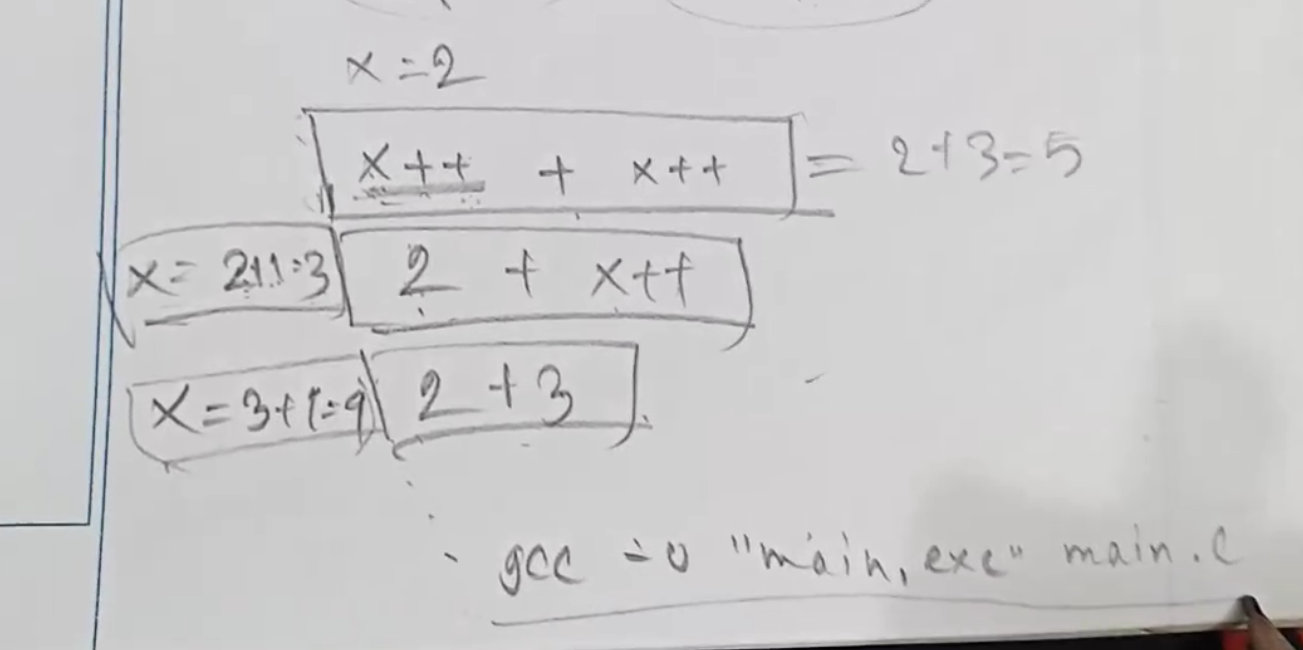 x = 2
x++ + x++ = 2+3=5
x = 2+1=3 2 + x++
x = 3+1=4 2 + 3
gcc -o "main.exe" main.c